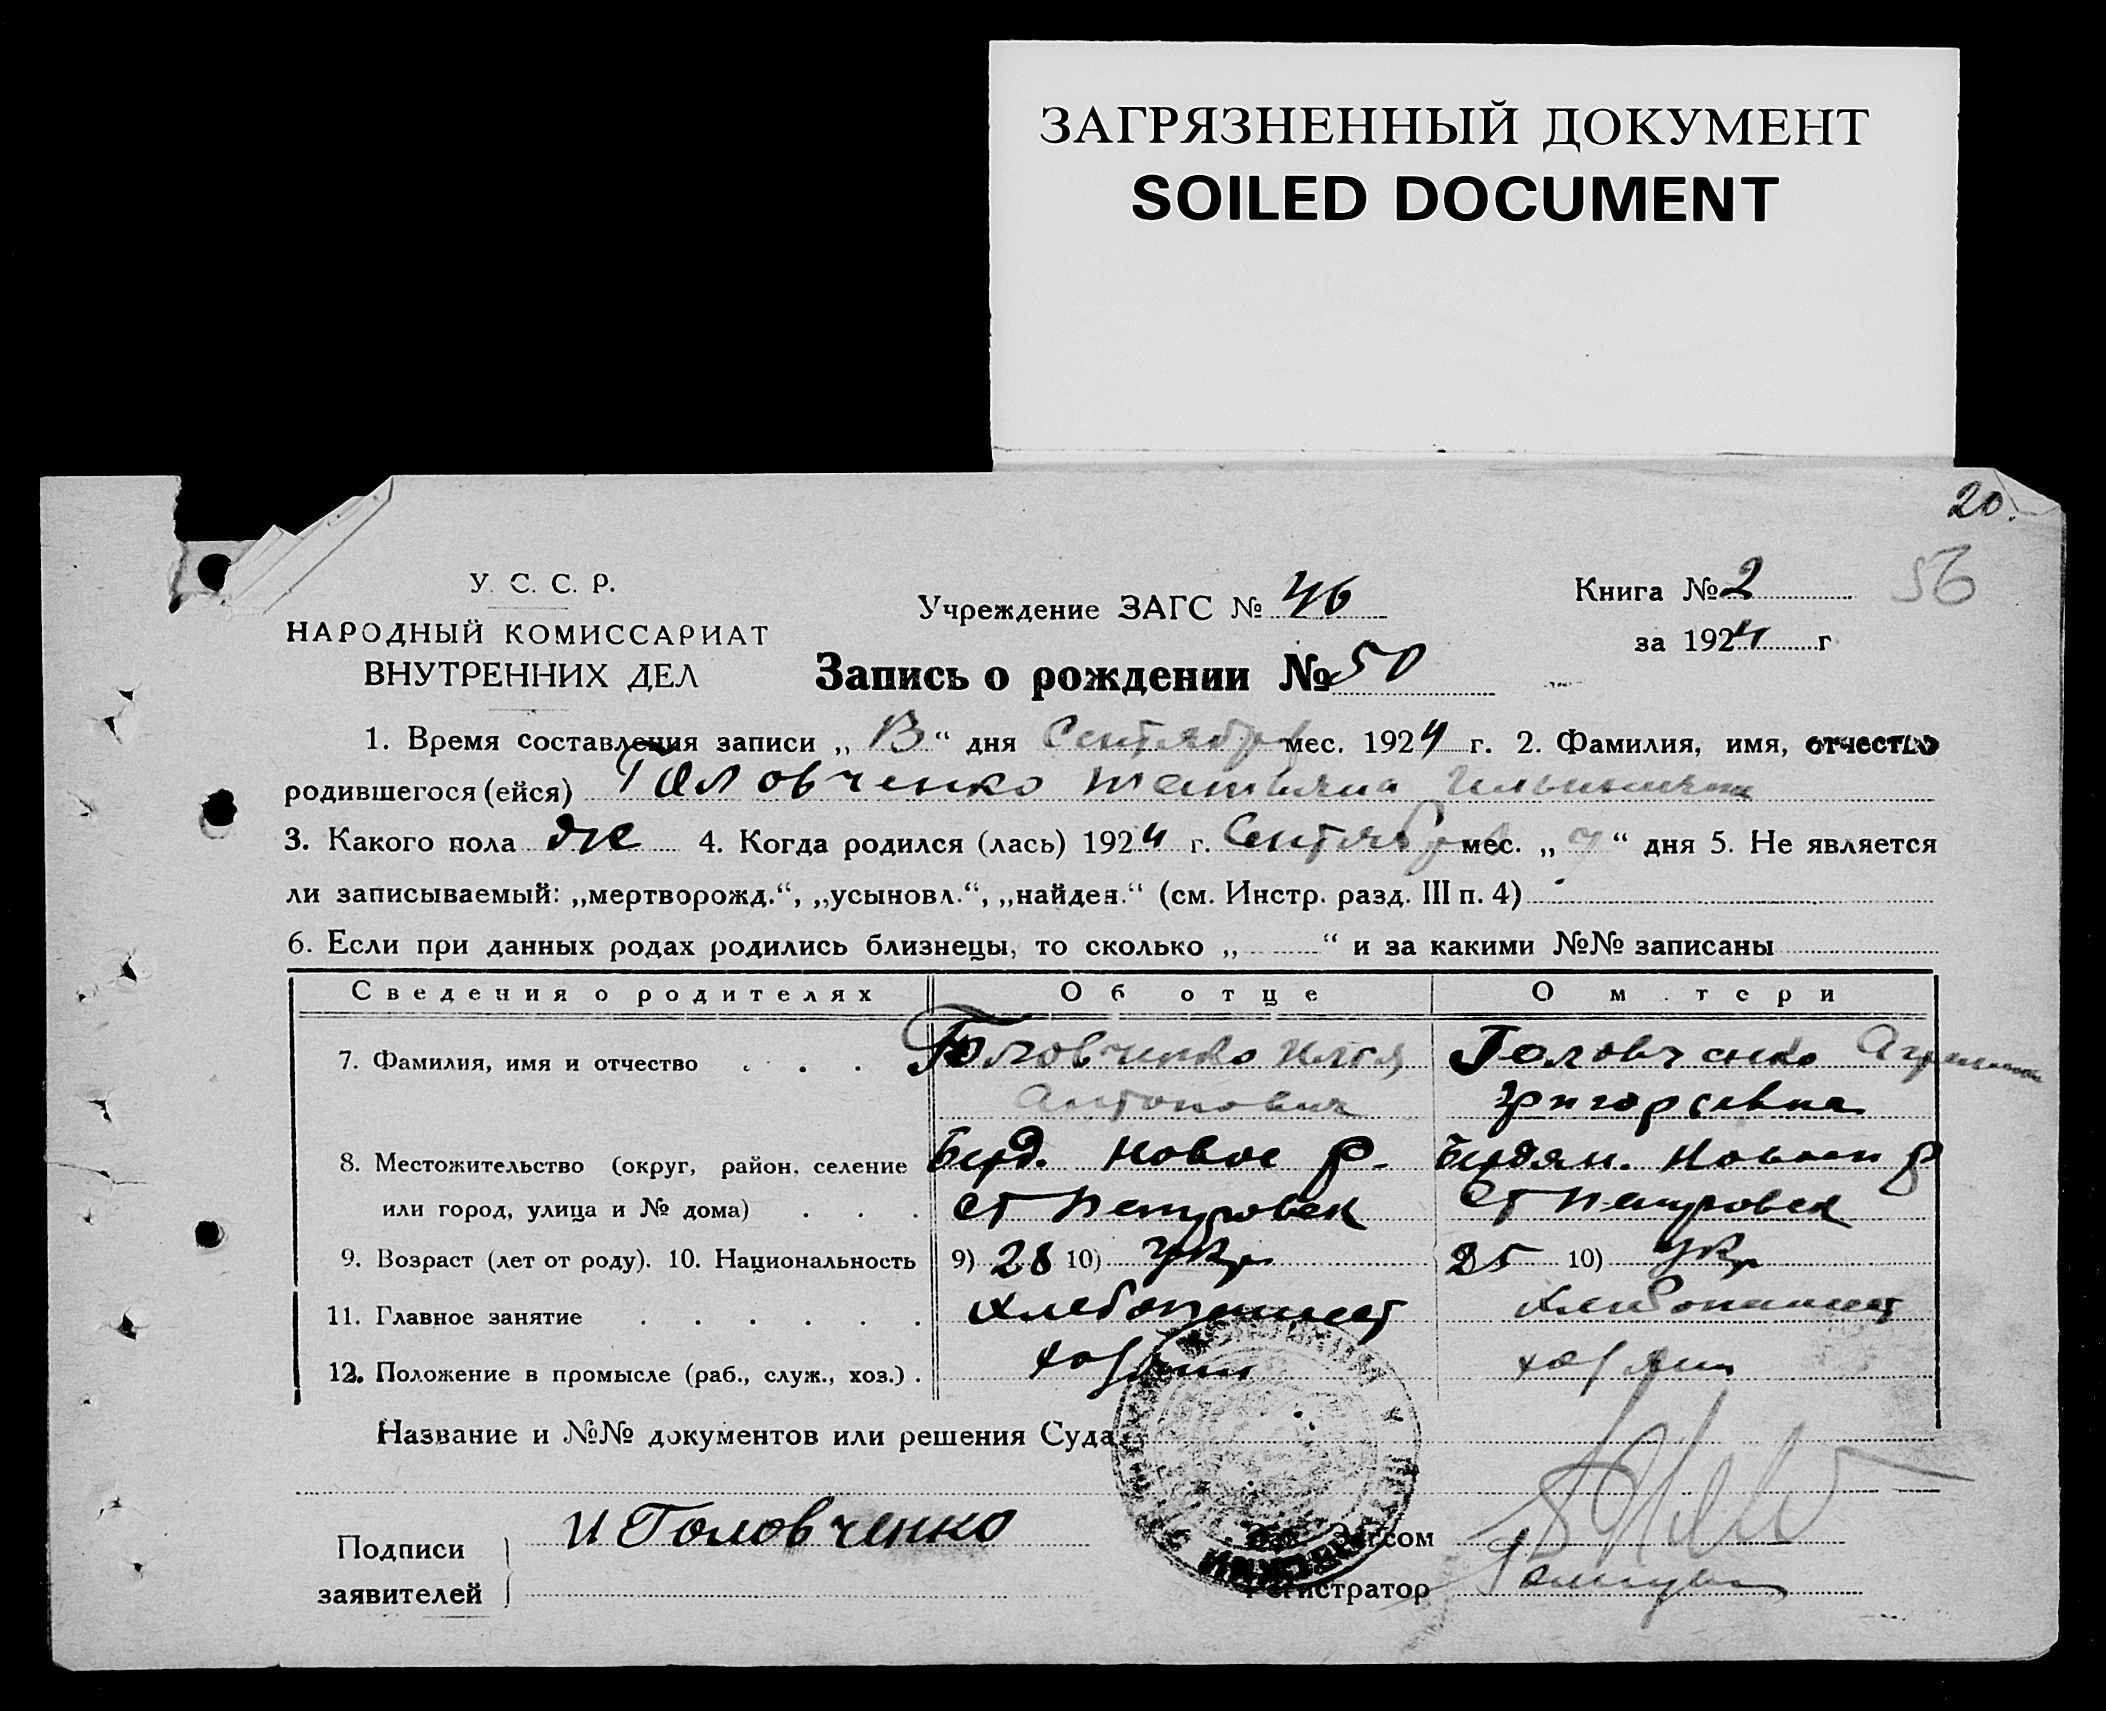 ЗАГРЯЗНЕННЫЙ ДОКУМЕНТ
SOILED DOCUMENT
20.
56
У. С. С. Р.
НАРОДНЫЙ КОМИССАРИАТ
ВНУТРЕННИХ ДЕЛ
Учреждение ЗАГС № 46
Книга № 2
за 1924 г
Запись о рождении № 50
1. Время составления записи „ 13 “ дня Сентября мес. 1924 г. 2. Фамилия, имя, отчество
родившегося (ейся) Головченко Татьяна
3. Какого пола же 4. Когда родился (лась) 1924 г. Сентября мес. „ “ дня 5. Не является
ли записываемый: „мертворожд.“, „усыновл.“, „найден.“ (см. Инстр. разд. III п. 4)
6. Если при данных родах родились близнецы, то сколько „ “ и за какими №№ записаны
Сведения о родителях Об отце О м тери
7. Фамилия, имя и отчество . . . Головченко Илья Головченко
Антонович Григорьевна
8. Местожительство (округ, район, селение Берд. Новос р. Бердян. р
или город, улица и № дома) . . . ст Петровск ст Петровск
9. Возраст (лет от роду). 10. Национальность 9) 28 10) Укр 25 10) Укр
11. Главное занятие . . . . . . Хлебопашест Хлебопашест
12. Положение в промысле (раб., служ., хоз.) . хозяин хозяин
Название и №№ документов или решения Суда
Подписи
заявителей
И Головченко
Зав. Загсом
Регистратор